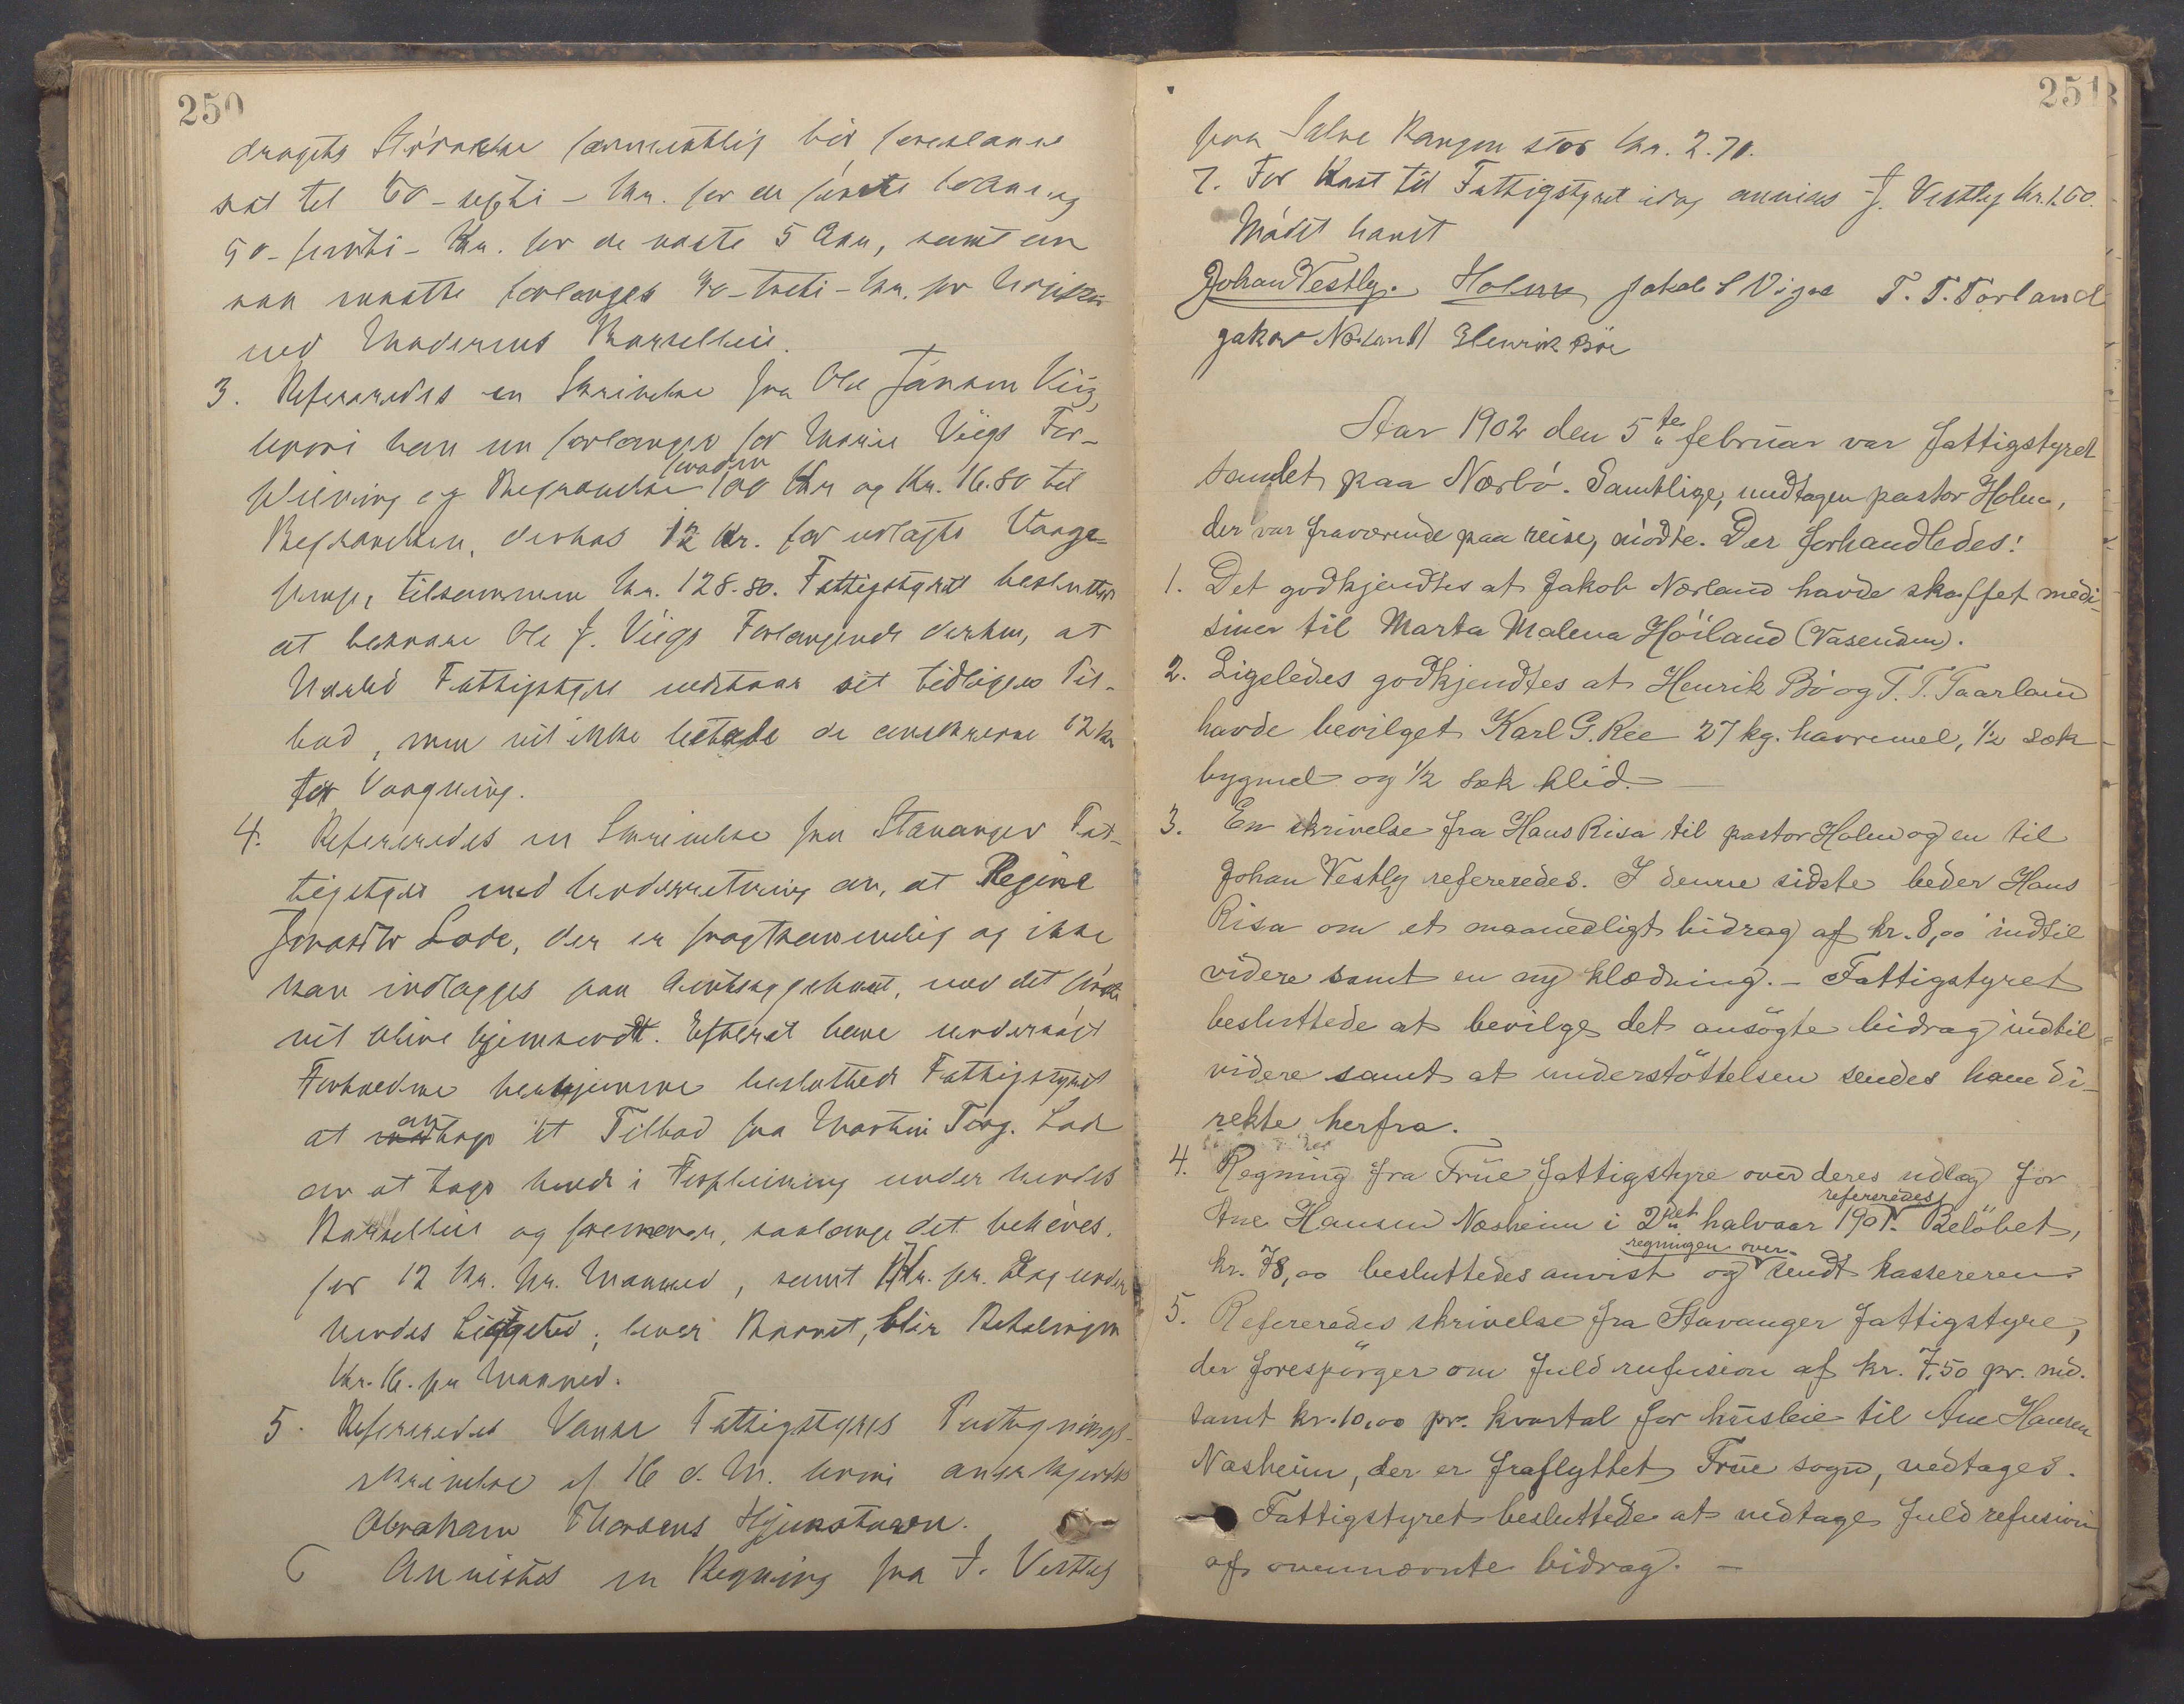 250
dragets Störrelse formentlig bör foreslaaes
sat til 60 - sexti - Kr. for de første 10 Aar og
50 - femti - Kr. for de næste 5 Aar, samt en
saa maatte forlanges 30 - treti - Kr. for Hjælpen
ved Moderens Barselleie.
3. Refereredes en Skrivelse fra Ole Jansen Viig,
hvori han nu forlanger for Marie Viigs For-
pleining og Begravelse 100 Kr og Kr. 16.80 til
Begravelsen, desuden 12 Kr. for udlagte Vaage-
penge, tilsammen Kr. 128.80. Fattigstyret besluttede
at besvare Ole J. Viigs Forlangende derhen, at
Nærbö Fattigstyre vedstaar sit tidligere Til-
bud, men vil ikke betale de omskrevne 12 Kr
for Vaagning.
4. Refereredes en Skrivelse fra Stavanger Fat-
tigstyre med Underretning om, at Regine
Lode, der er frugtsommelig og ikke
kan indlægges paa Amtssygehuset, med det første
vil blive hjemsendt. Efter at have undersøgt
Forholdene besluttede Fattigstyret
at antage et Tilbud fra Martin Torg. Lode
om at tage hende i Forpleining under hendes
Barselleie og fremover, saalænge det behöves,
for 12 Kr. pr. Maaned, samt 1 Kr. pr. Dag under
hendes Liggetid; lever Barnet, blir Betalingen
Kr. 16. pr Maaned.
5. Refereredes Vanse Fattigstyres Vedtagnings-
skrivelse af 16 d. M. hvori anerkjendes
Abraham Thorsens Hjemstavn.
6 Anvistes en Regning fra J. Vestly
251
fra Salve Rangen stor Kr. 2.70.
7. For Kost til Fattigstyret idag anvises J. Vestly Kr. 1.50.
Mödet hævet
Johan Vestly. Holm Jakob S Vigre T. T. Torland
Jakob Nærland Henrik Böe
Aar 1902 den 5te februar var fattigstyret
samlet paa Nærbö. Samtlige, undtagen pastor Holm,
der var fraværende paa reise, mödte. Der forhandledes:
1. Det godkjendtes at Jakob Nærland havde skaffet medi-
siner til Marta Malena Höiland (Vasenden).
2. Ligeledes godkjendtes at Henrik Bö og T. T. Taarland
havde bevilget Karl G. Ree 27 kg. havremel, 1/2 sæk
bygmel og 1/2 sæk klid. -
3. En skrivelse fra Hans Risa til pastor Holm og en til
Johan Vestly refereredes. I denne sidste beder Hans
Risa om et maanedligt bidrag af kr. 8,00 indtil
videre samt en ny klædning. - Fattigstyret
besluttede at bevilge det ansögte bidrag indtil
videre samt at understöttelsen sendes ham di-
rekte herfra.
4. Regning fra Frue fattigstyre over deres udlæg for
Ane Hansen Næsheim i 2det halvaar 1901 refereredes. Belöbet,
kr. 78,00 besluttedes anvist og regningen over-sendt kassereren.
5. Refereredes skrivelse fra Stavanger fattigstyre,
der forespörger om fuld refusion af kr. 7,50 pr. md.
samt kr. 10,00 pr. kvartal for husleie til Ane Hansen
Næsheim, der er fraflyttet Frue sogn, vedtages.
Fattigstyret besluttede at vedtage fuld refusion
af ovennævnte bidrag. -